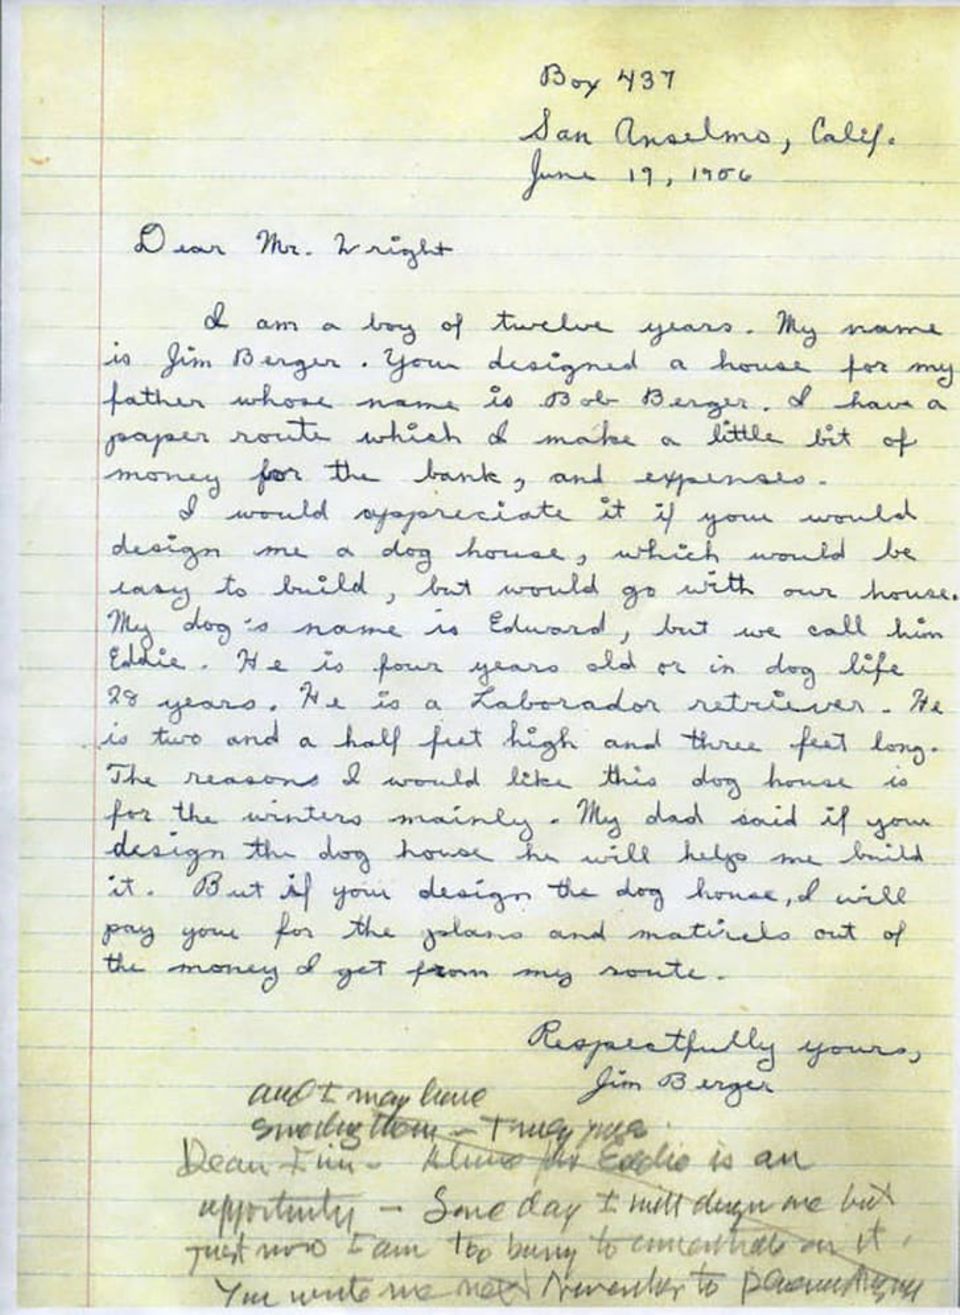 Box 437
San Anselmo, Calif.
June 19, 1956
Dear Mr. Wright
I am a boy of twelve years. My name
is Jim Berger. You designed a house for my
father whose name is Bob Berger. I have a
paper route which I make a little bit of
money for the bank, and expenses.
I would appreciate it if you would
design me a dog house, which would be
easy to build, but would go with our house.
My dog's name is Edward, but we call him
Eddie. He is four years old or in dog life
28 years. He is a Laborador retriever. He
is two and a half feet high and three feet long.
The reasons I would like this dog house is
for the winters mainly. My dad said if you
design the dog house he will help me build
it. But if you design the dog house, I will
pay you for the plans and matirels out of
the money I get from my route.
Respectfully yours,
Jim Berger
and I may have
something then - Truly yrs.
Dear Jim - A house for Eddie is an
opportunity - Some day I will design one but
just now I am too busy to concentrate on it.
You write me next November to Phoenix